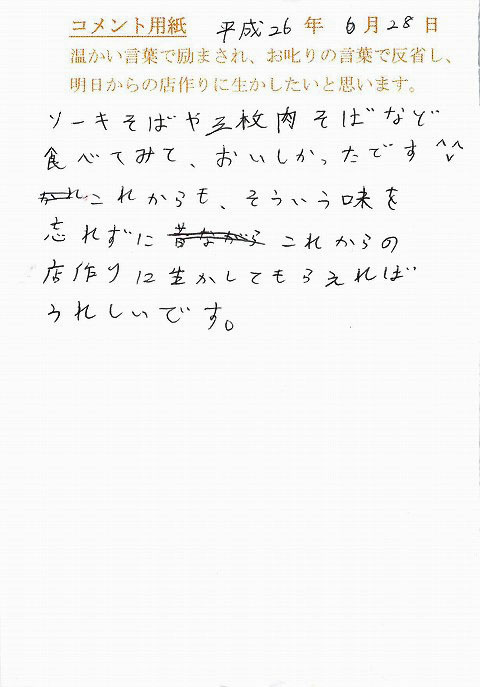 コメント用紙 平成26年 6月28日
温かい言葉で励まされ、お叱りの言葉で反省し、
明日からの店作りに生かしたいと思います。
ソーキそばや三枚肉そばなど
食べてみて、おいしかったです^v^
これからも、そういう味を
忘れずに昔ながらこれからの
店作りに生かしてもらえれば
うれしいです。